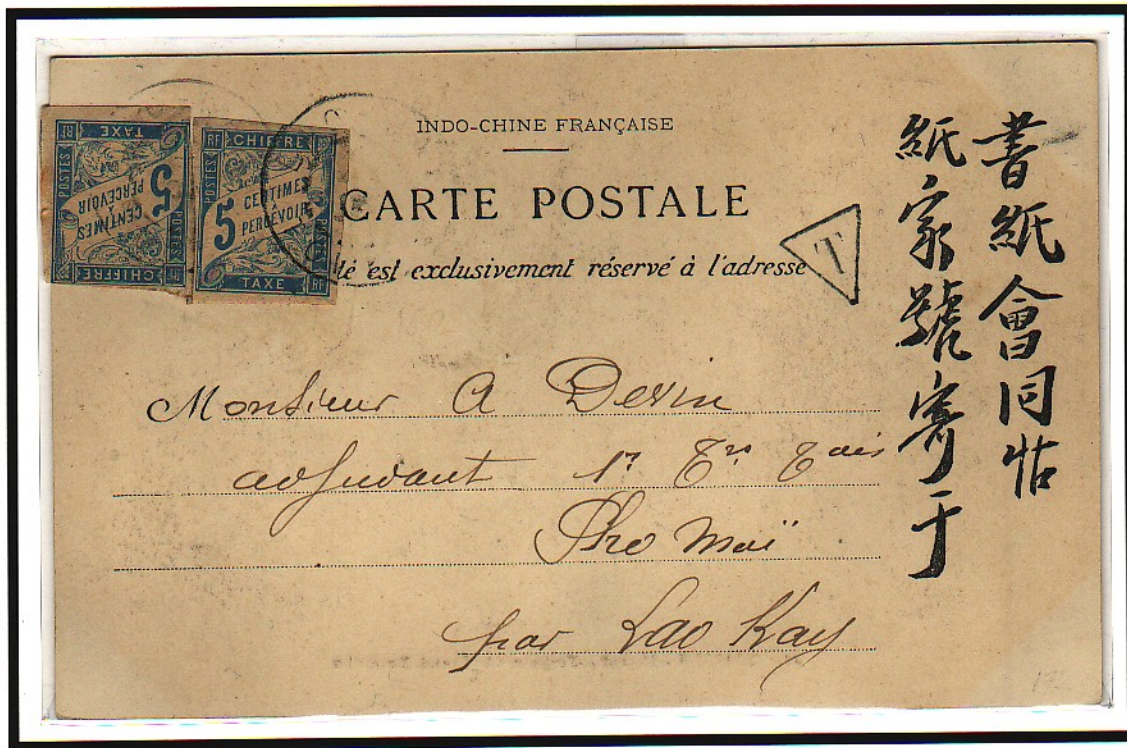 INDO-CHINE FRANÇAISE
CARTE POSTALE
té est exclusivement réservé à l'adresse
T
POSTES
CHIFFRE
5
CENTIMES
PERCEVOIR
TAXE
RF
RF CHIFFRE
POSTES
À
5
CENTIMES
PERCEVOIR
TAXE RF
Monsieur A Devin
adjudant 1er
Pho Moï
par Lao Kay
書紙會同帖
紙家號寄于